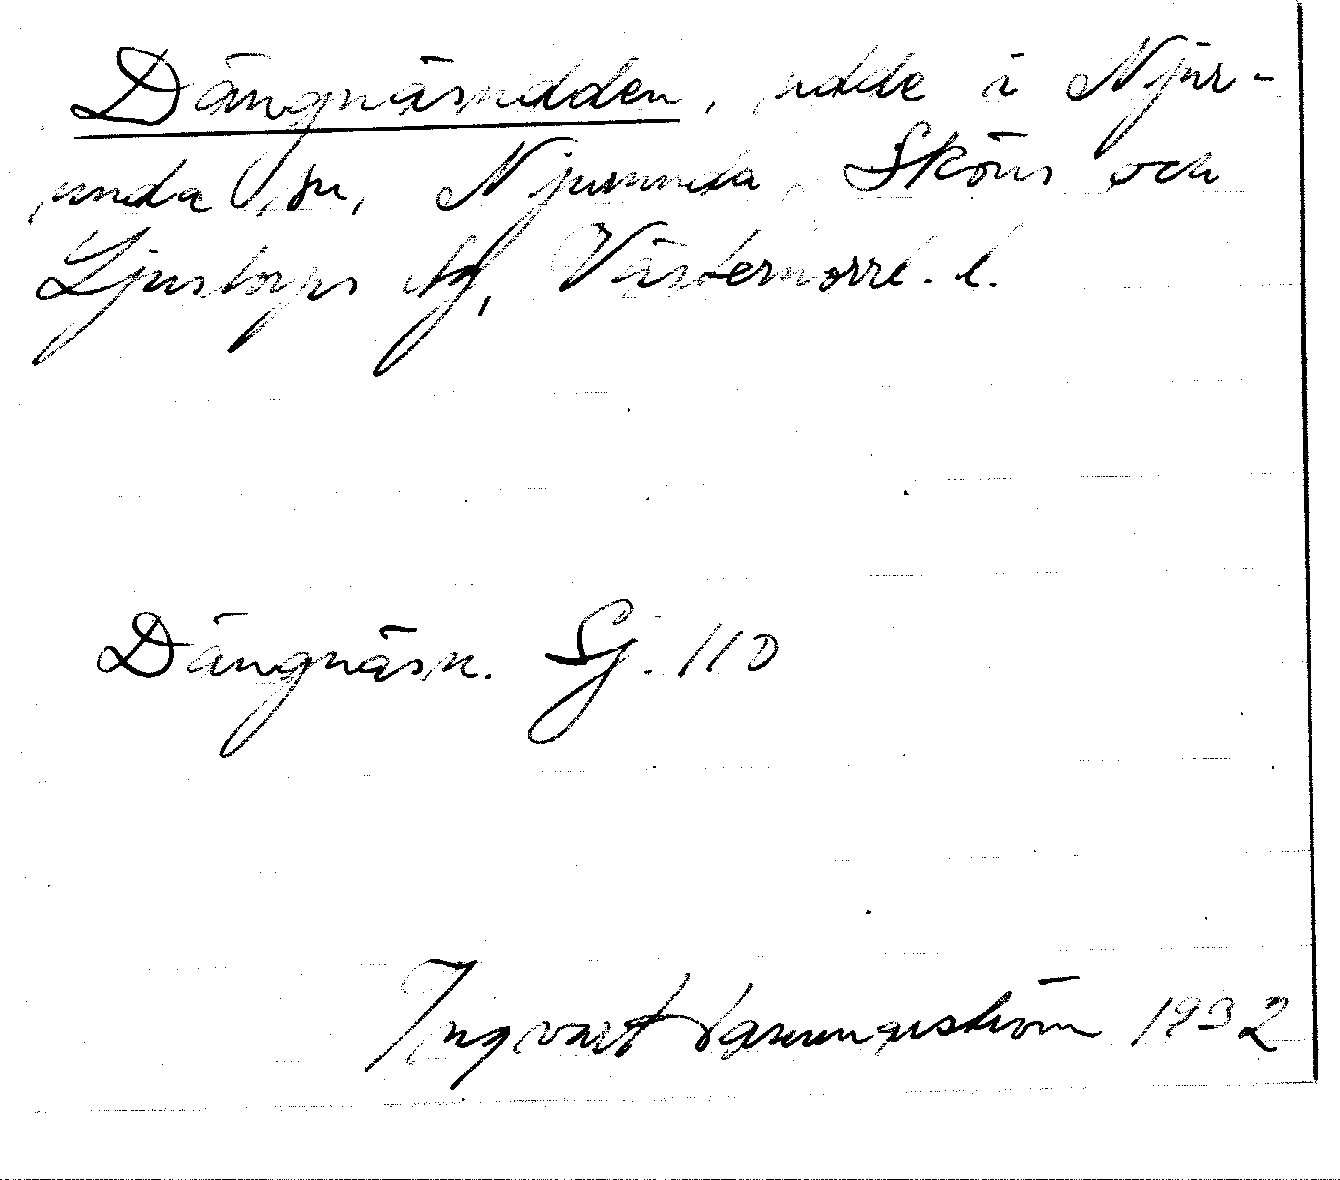 Dängnäsudden, udde i Njur-
unda sn, Njurunda, Sköns och
Ljustorps tlg, Västernorrl. l.
Dängnäsn. Sj. 110
Ingvart 1932